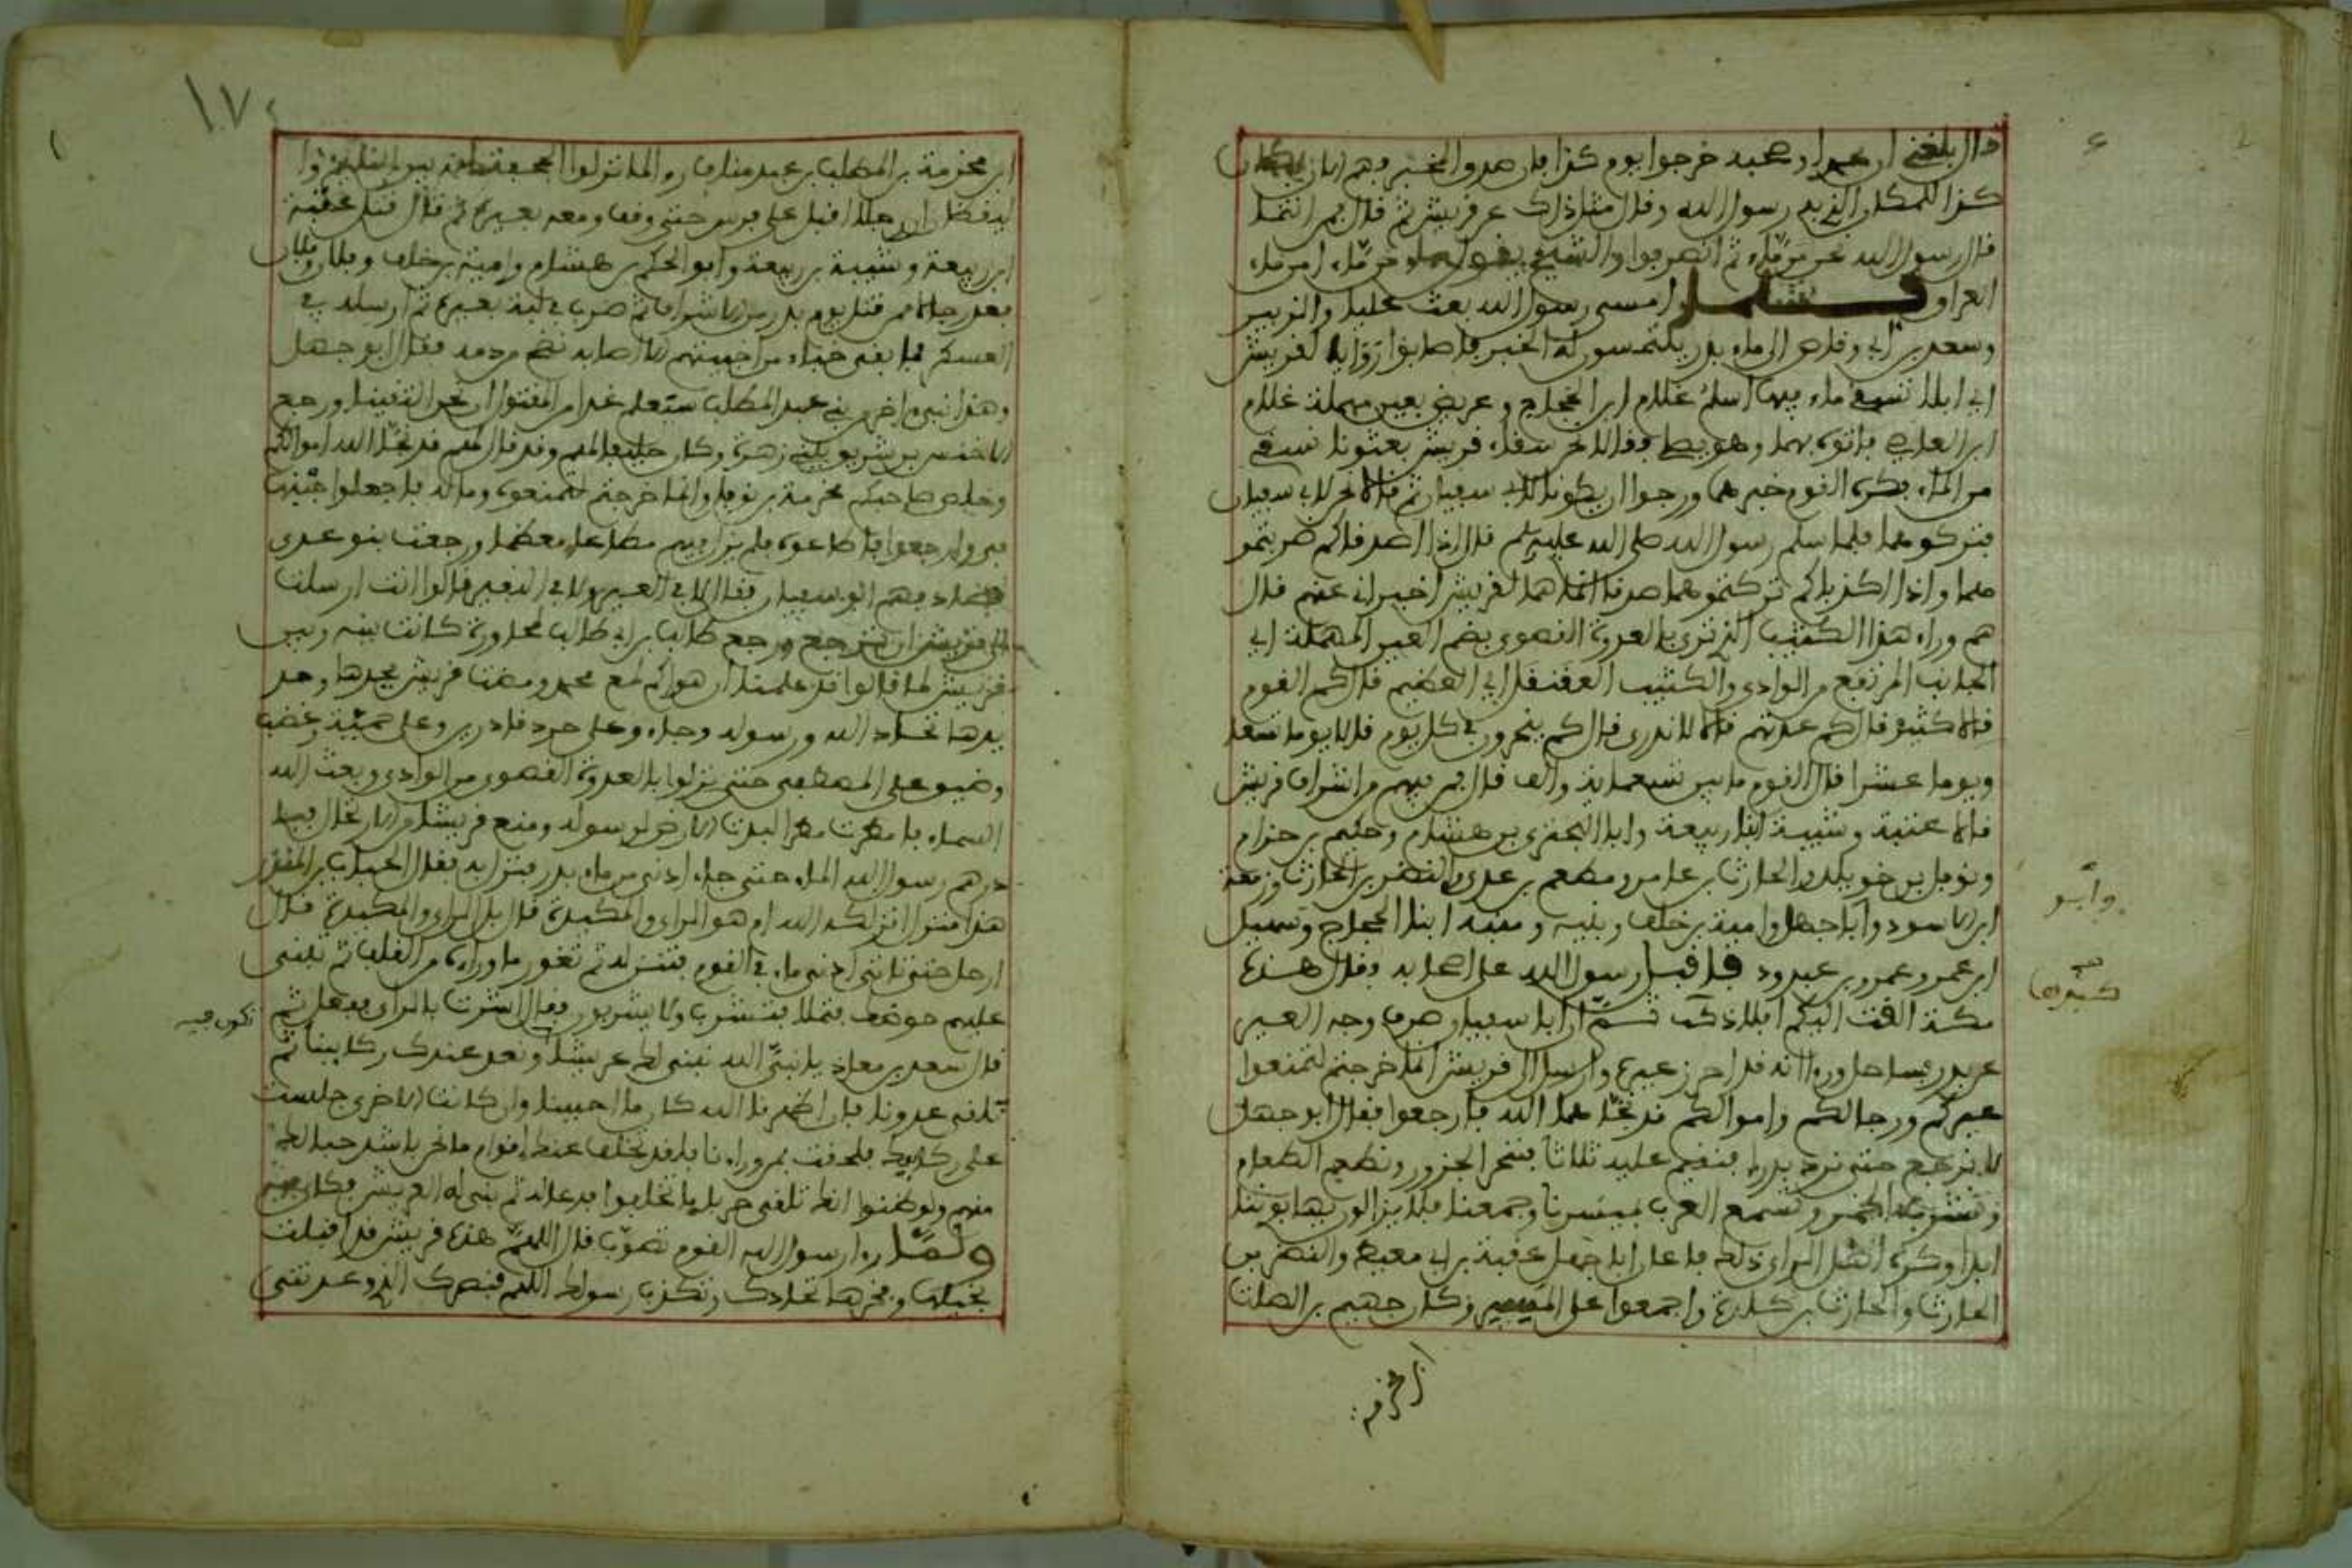 قال بلغني ان محمدا وصحبه خرجوا يوم كذا فان صدق المخبر فهم الان بمكان
كذا للمكان الذي به رسول الله وقال مثل ذلك عن قريش ثم قال ممن انتما
قال رسول الله نحن من ماء ثم انصرفوا والشيخ يقول ما من ماء امن ماء
العراق فلما امسى رسول الله بعث عليا والزبير
وسعد بن ابي وقاص الى ماء بدر يلتمسون له الخبر فاصابوا راوية لقريش
اي ابلا تسقي ماء فيها اسلم غلام ابن الحجاج وعريض بعين مهملة غلام
ابن العاص فاتوه بهما وهو يصلي فقالا نحن سقاء قريش بعثونا نسقي
من الماء فكره القوم خبرهما ورجوا ان يكونا لابي سفيان ثم قالا نحن لابي سفيان
فتركوهما فلما سلم رسول الله صلى الله عليه وسلم قال اذا اصدقاكم ضربتمو
هما واذا اكذباكم تركتموهما صدقا انما هما لقريش اخبراني عنهم قالا
هم وراء هذا الكثيب الذي ترى بالعدوة القصوى بضم العين المهملة اي
الجانب المرتفع من الوادي والكثيب العقنقل اي العظيم قال كم القوم
قالا كثير قال كم عدتهم قالا لا ندري قال كم ينحرون في كل يوم قالا يوما تسعا
ويوما عشرا قال القوم ما بين تسعماية والف قال فمن فيهم من اشراف قريش
قالا عتبة وشيبة ابنا ربيعة وابا البختري بن هشام وحكيم بن حزام
ونوفل بن خويلد والحارث بن عامر ومطعم بن عدي والنضر بن الحارث وزمعة
ابن الاسود وابا جهل وامية بن خلف ونبيه ومنبه ابنا الحجاج وسهيل
ابن عمرو وعمرو بن عبد ود فاقبل رسول الله على اصحابه وقال هذه
مكة القت اليكم افلاذ كبدها ثم ان ابا سفيان صرف وجه العير
عن بدر بساحل ورءا انه قد احرز عيره وارسل الى قريش انما خرجتم لتمنعوا
عيركم ورجالكم واموالكم قد نجاهما الله فارجعوا فقال ابو جهل
لا نرجع حتى نرد بدرا فنقيم عليه ثلاثا فننحر الجزور ونطعم الطعام
ونشرب الخمر وتسمع العرب بمسيرنا وجمعنا فلا يزالون يهابوننا
ابدا وكره اهل الراي ذلك فاعان ابا جهل عقبة بن ابي معيط والنضر بن
الحارث والحارث بن كلدة واجمعوا على المسير وكان جهيم بن الصلت
وابو
كبدها
ابن مخرمة
١٧٤
ابن مخرمة بن المطلب بن عبد مناف رءا لما نزلوا الجحفة بين النايم وا
ليقظان رجلا اقبل على فرس حتى وقف ومعه بعير له ثم قال قتل عتبة
ابن ربيعة وشيبة بن ربيعة وابو الحكم بن هشام وامية بن خلف وفلان وفلان
فعد رجالا ممن قتل يوم بدر من الاشراف ثم ضرب في لبة بعيره ثم ارسله في
العسكر فما بقي خباء من اخبيتهم الا اصابه نضح من دمه فقال ابو جهل
وهذا نبيء اخر من بني عبد المطلب ستعلم غدا من المقتول ان نحن التقينا ورجع
الاخنس بن شريق ببني زهرة وكان حليفا لهم وقد قال لهم قد نجا الله اموالكم
وخلص صاحبكم مخرمة بن نوفل وانما خرجتم لتمنعوه وماله فاجعلوا جبنها
بي وارجعوا فاطاعوه فلم يزل فيهم مطاعا معظما ورجعت بنو عدي
فصادفهم ابو سفيان فقال لا في العير ولا في النفير قالوا انت ارسلت
الى قريش ان ترجع ورجع طالب بن ابي طالب لمحاورة كانت بينه وبين
قريش لما قالوا قد علمنا ان هواكم لمع محمد ومضت قريش بحدها وحد
يدها تحاد الله ورسوله وجاءوا على حرد قادرين وعلى حمية وغضب
حتى نزلوا بالعدوة القصوى من الوادي وبعث الله
السماء فامطرت مطرا لبدت الارض لرسوله ومنع قريشا من الارتحال فبا
درهم رسول الله الماء حتى جاء ادنى من ماء بدر فنزل به فقال الحباب بن المنذر
هذا منزل انزلكه الله ام هو الراي والمكيدة قال بل الراي والمكيدة قال
ارحل حتى ناتي ادنى ماء في القوم فننزله ثم نغور ما وراءه من القلب ثم نبني
عليهم حوضا فنملا فنشرب ولا يشربون فقال اشرت بالراي ففعل ثم
قال سعد بن معاذ يا نبي الله نبني لك عريشا ونعد عندك ركابنا ثم
نلقى عدونا فان اظهرنا الله كان ما احببنا وان كانت الاخرى جلست
على ركابك فلحقت بمن وراءنا فقد تخلف عنك اقوام ما نحن باشد حبا لك
منهم ولو ظنوا انك تلقى حربا ما تخلفوا فدعا له ثم بني له العريش فكان فيه
ولما رءا رسول الله القوم تصوب قال اللهم هذه قريش قد اقبلت
بخيلها وفخرها تحادك وتكذب رسولك اللهم فنصرك الذي وعدتني
تكون فيه